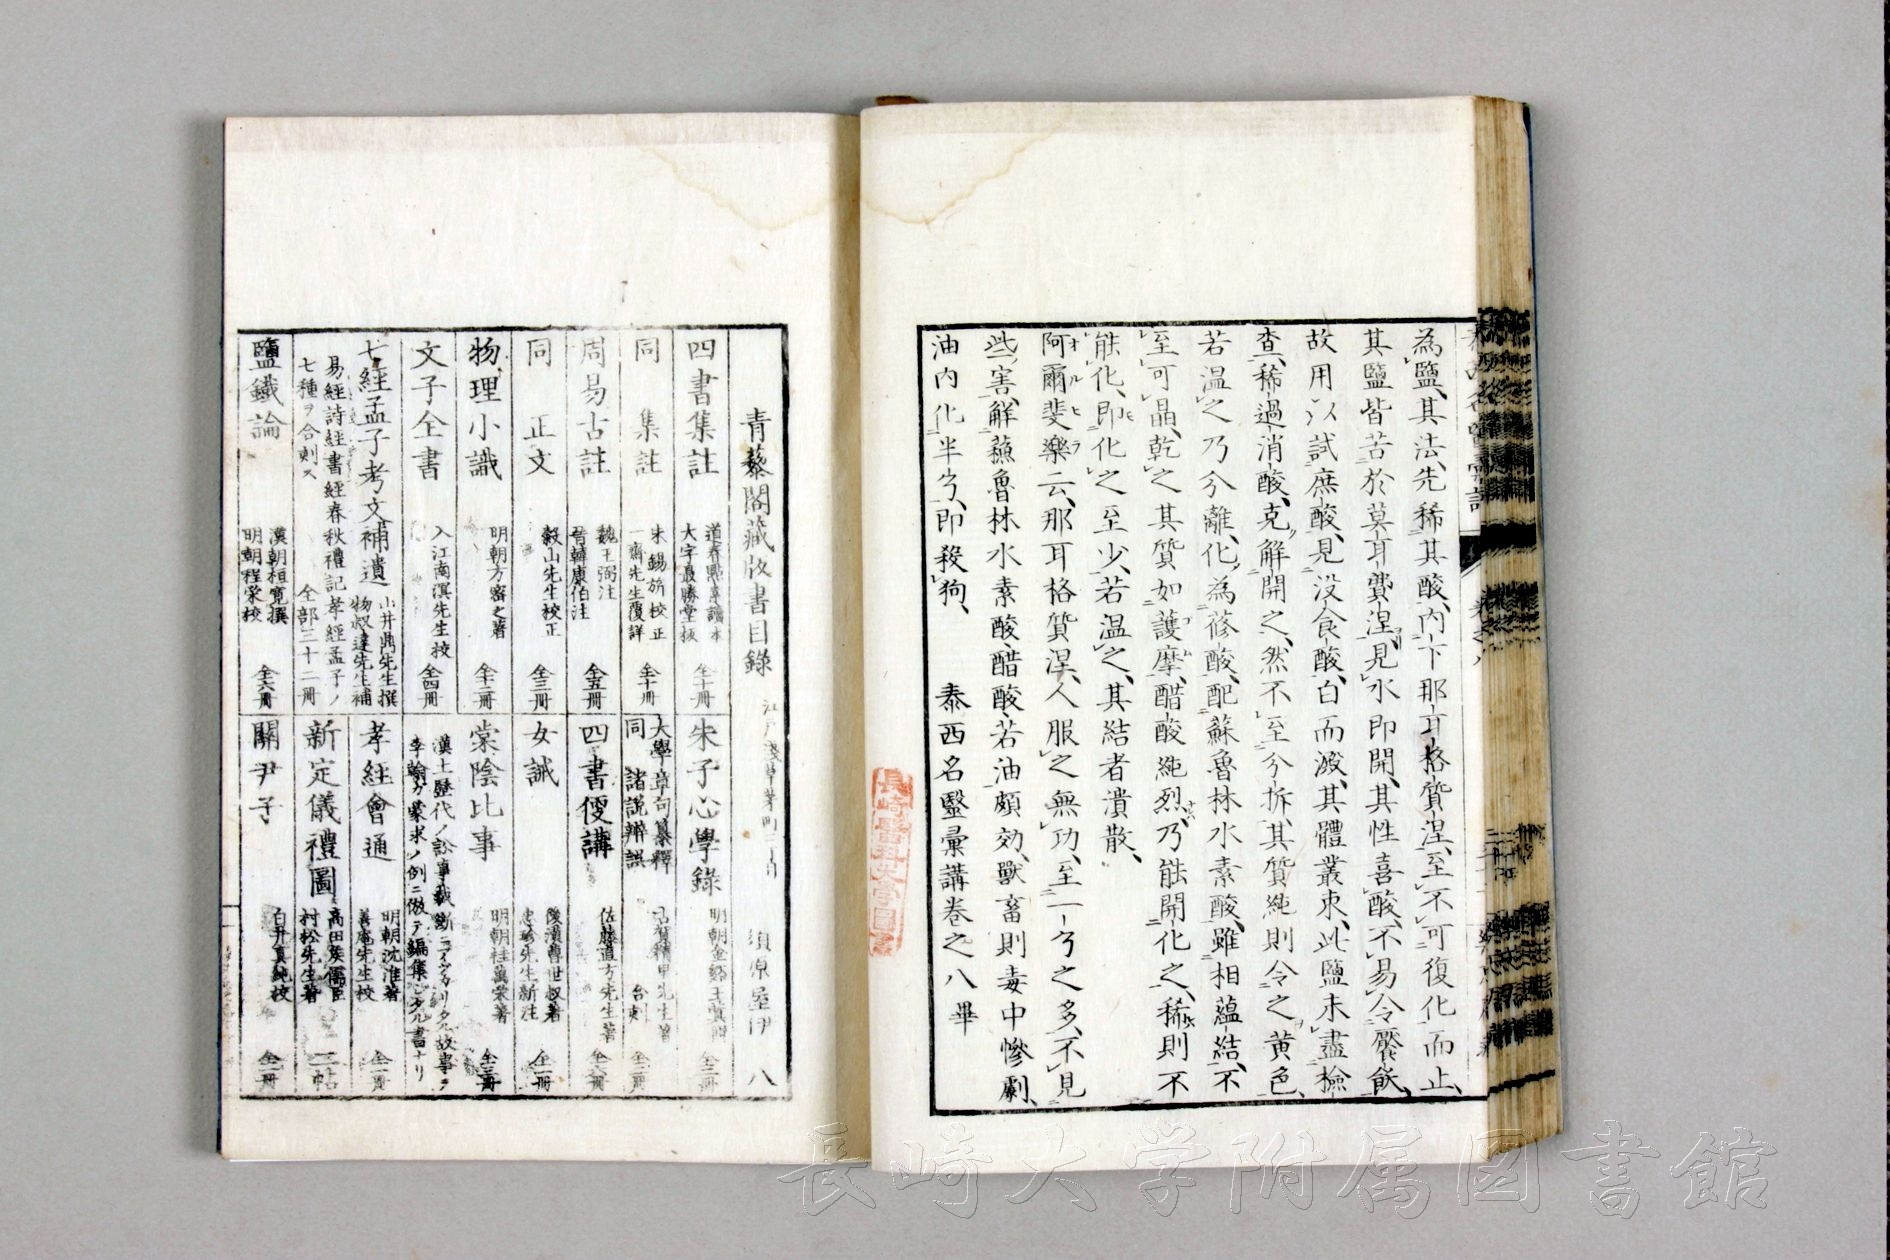 為鹽、其法、先稀其酸、內下那耳格質涅、至不可復化而止、
其鹽皆苦於莫耳費涅、見水即開、其性喜酸、不易令饜飫、
故用以試庶酸、見没食酸、白而澱、其體叢朿、此鹽未盡檢
查、稀過消酸、克解開之、然不至分拆、其質純則令之黄色、
若温之乃分離、化為蓚酸、配蘇魯林水素酸、雖相蘊結、不
至可晶、乾之其質如護摩、醋酸純烈、乃能開化之、稀則不
能化、即化之至少、若温之、其結者潰散、
阿爾斐樂云、那耳格質涅、人服之無功、至一々之多、不見
些害、鮮蘓魯林水素酸、醋酸、若油頗効、獸畜則毒中慘劇、
油内化半々、即殺狗、
泰西名醫彙講卷之八畢
長崎醫科大学圖書
青藜閣藏版書目錄
江戸淺草茅町二丁目 須原屋伊八
四書集註 道春點素讀本 大字最勝堂板 全十冊
同 集註 朱錫旂校正 一齋先生復詳 全十冊
周易古註 魏王弼注 晉韓康伯注 全五冊
同 正文 穀山先生校正 全三冊
物理小識 明朝方密之著 全十二冊
文子全書 入江南溟先生校 全四冊
七經孟子考文補遺 山井鼎先生撰 物叔達先生補
易經詩經書經春秋禮記孝經孟子ノ
七種ヲ合刻ス 全部三十二冊
鹽鐵論 漢朝桓寛撰 明朝程榮校 全六冊
朱子心學錄 全三冊
大學章句纂釋
同 諸説辨誤 全二冊
四書便講 佐藤直方先生著 全六冊
女誡 後漢曹世叔著 全一冊
棠陰比事 明朝桂萬榮著 全三冊
漢土歴代ノ訟事裁斷ニイヅカリタル故事ヲ
李翰ガ蒙求ノ例ニ倣テ編集シタル書ナリ
孝經會通 明朝沈淮著 善庵先生校 全一冊
新定儀禮圖 高田侯儒臣 村松先生著 二帖
關尹子 白井真純校 全二冊
長崎大学附属図書館